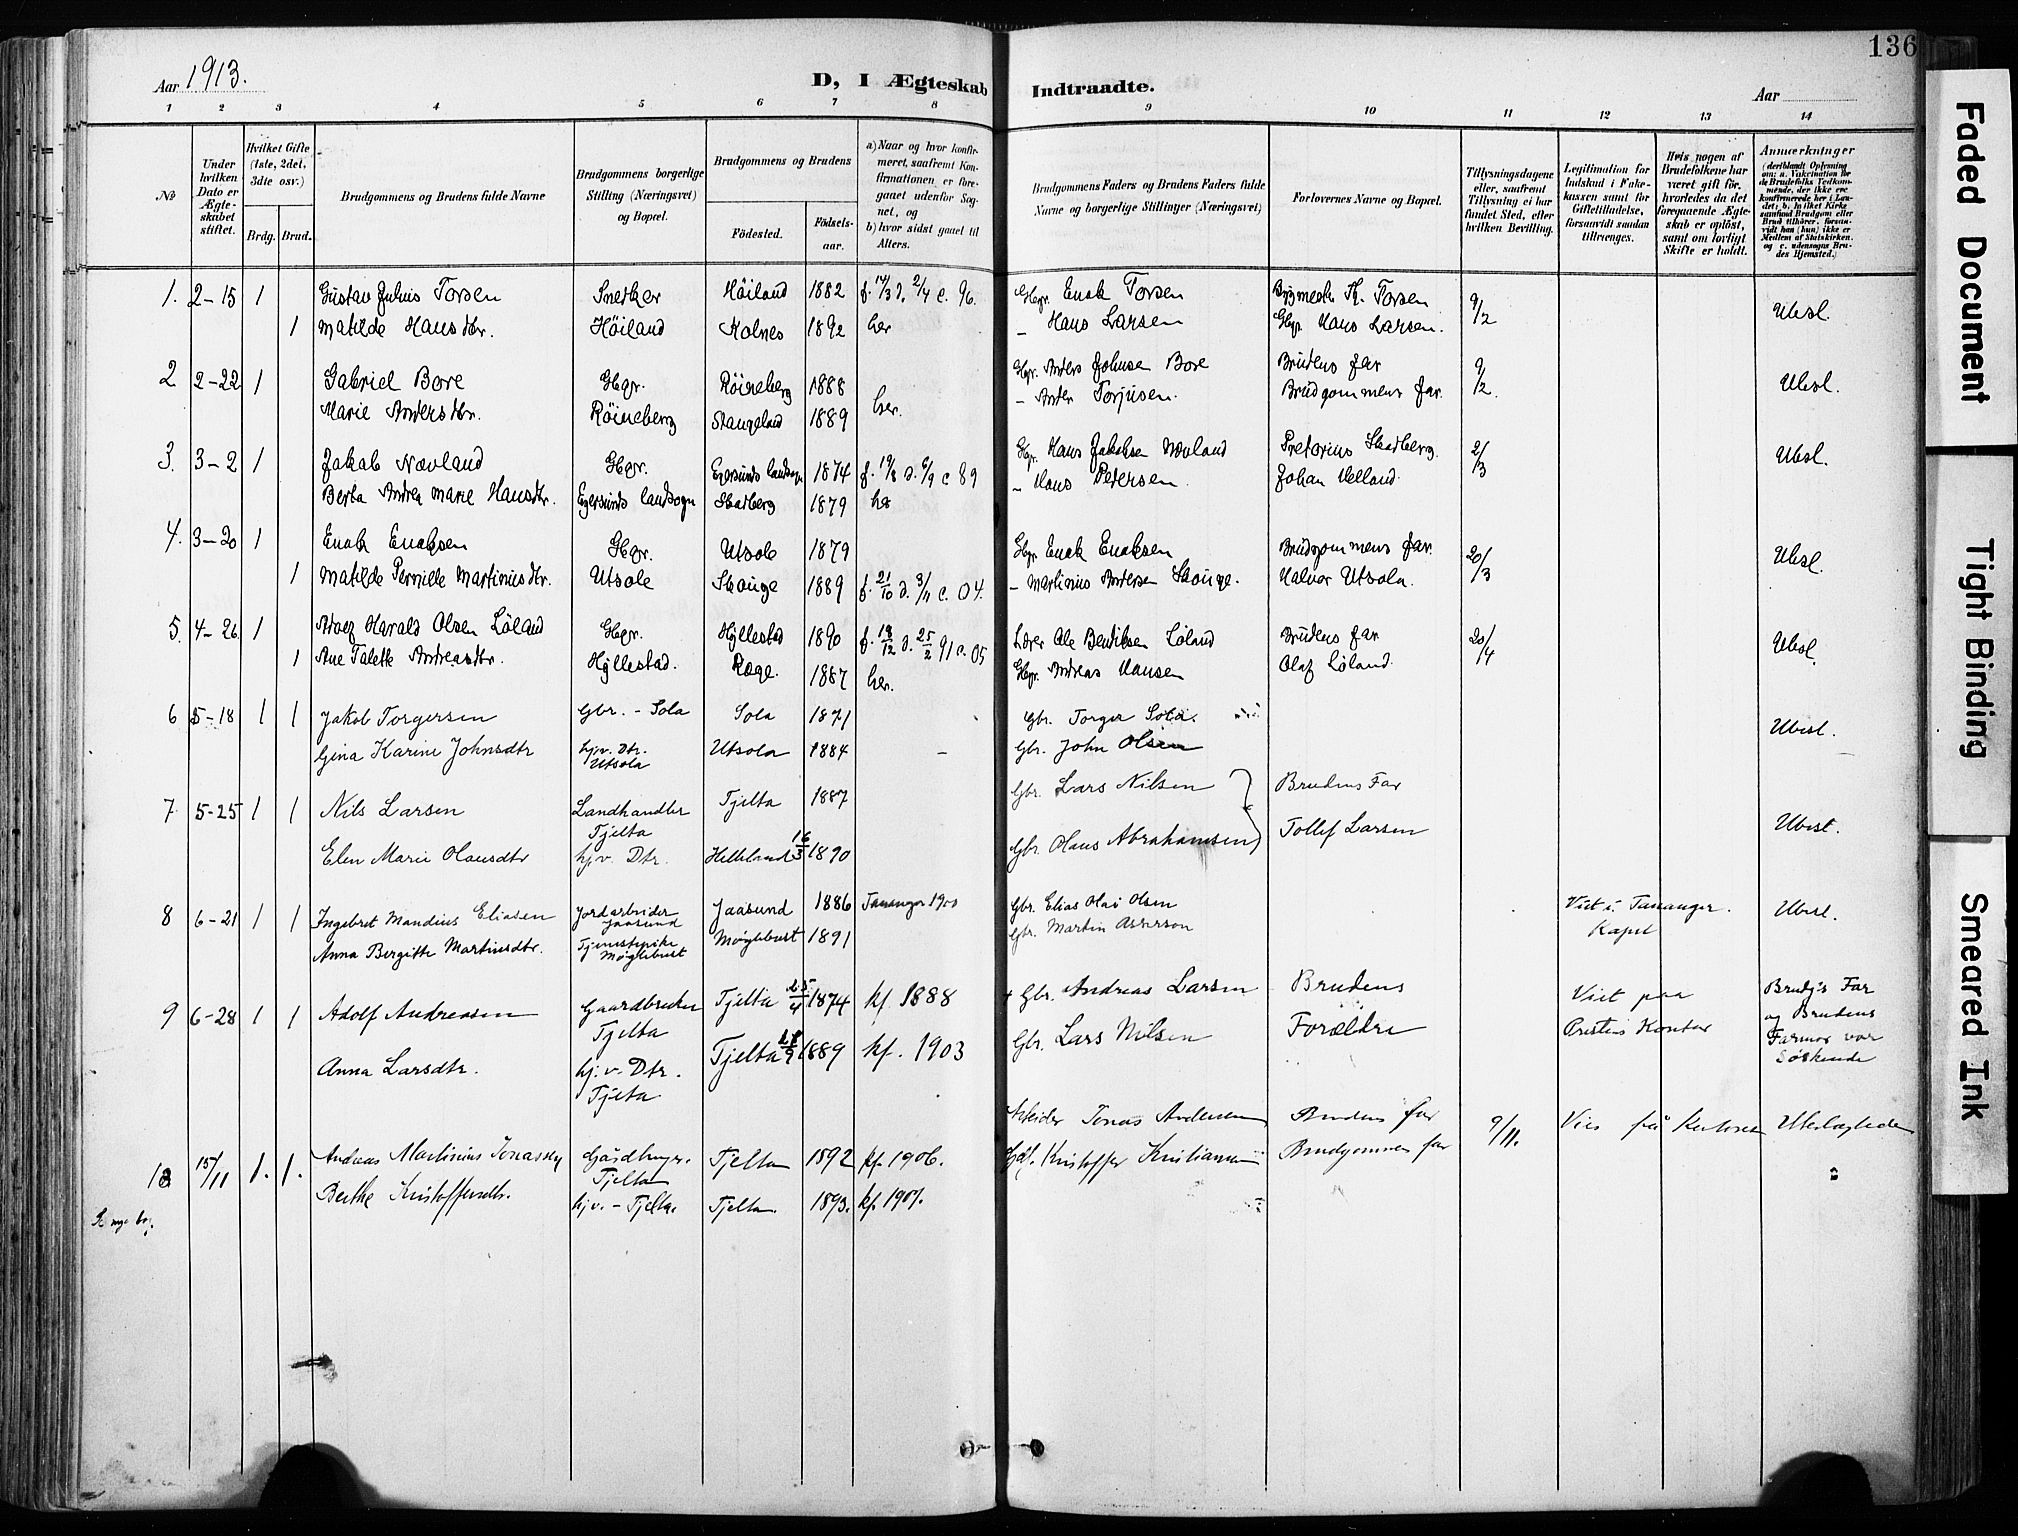 136
Aar 1913.
D, I Ægteskab Indtraadte.
Aar
1 2 3 4 5 6 7 8 9 10 11 12 13 14
№
Under hvilken Dato er Ægteskabet stiftet.
Hvilket Gifte (1ste, 2det, 3dte osv.)
Brdg. Brud.
Brudgommens og Brudens fulde Navne
Brudgommens borgerlige Stilling (Næringsvei) og Bopæl.
Brudgommens og Brudens
Födested. Födselsaar.
a) Naar og hvor konfirmeret, saafremt Konfirmationen er foregaaet udenfor Sognet, og
b) hvor sidst gaaet til Alters.
Brudgommens Faders og Brudens Faders fulde Navne og borgerlige Stillinger (Næringsvei)
Forlovernes Navne og Bopæl.
Tillysningsdagene eller, saafremt Tillysning ei har fundet Sted, efter hvilken Bevilling.
Legitimation for Indskud i Enkekassen samt for Giftetilladelse, forsaavidt saadan tiltrænges.
Hvis nogen af Brudefolkene har været gift før, hvorledes da det foregaaende Ægteskab er opløst, samt om lovligt Skifte er holdt.
Anmærkninger
1. 2-15 1 Gustav Julius Torsen Snedker Höiland 1882 f. 14/3 d. 2/4 c. 96. Gbgr. Enok Torsen Bygmester Th. Torsen 9/2 Ubesl.
1 Matilde Hansdtr. Höiland Kolnes 1892 her - Hans Larsen Gbgr. Hans Larsen.
2 2-22 1 Gabriel Bore Gbgr. Röineberg 1888 Gbgr. Anders Johnsen Bore Brudens far 9/2. Ubesl.
Marie Andersdtr. Röineberg Stangeland 1889 her. - Anders Torjusen. Brudgommens far.
3. 3-2 1 Jakob Nævland Gbgr. Egersunds landsogn 1874 Gbgr. Hans Jakobsen Nævland Pretorius Skadberg. 2/3 Ubesl.
Berta Andrea Marie Hansdtr. Egersunds landsogn Skadberg 1879 her - Hans Pedersen Johan Velland
4. 3-20 1 Enok Enoksen Gbgr. Utsole 1879 Gbgr. Enok Enoksen Brudgommens far. 20/3 Ubesl.
1 Matilde Pernille Martiniusdtr. Utsole Skonge 1889 f. 21/10 d. 3/11 c. 04. - Martinius Andersen Skonge. Halvor Utsola.
5. 4-26 1 Adolf Harald Olsen Löland Gbgr. Hyllestad 1890 f. 18/12 d. 25/2 91 c. 05 Lærer Ole Bendiksen Löland Brudens far 20/4 Ubesl.
1 Ane Talette Andreasdtr. Hyllestad. Ræge. 1887 her. Gbgr. Andreas Hansen Olaf Löland
6 5-18 1 1 Jakob Torgersen Gbr. - Sola Sola 1871 Gbr. Torger Sola. Ubesl.
Gina Karine Johnsdtr hjv. Dtr. Utsola Utsola 1884 - Gbr. John Olsen
7 5-25 1 1 Nils Larsen Landhandler Tjelta Tjelta 1887 Gbr. Lars Nilsen Brudens Far Ubesl.
Elen Marie Olausdtr hj.v. Dtr. Helleland 16/3 1890 Gbr. Olaus Abrahamsen Tollef Larsen
8 6-21 1 1 Ingebret Mandius Eliasen Jordarbeider Jaasund Jaasund 1886 Tananger 1900 Gbr. Elias Olai Olsen Viet i Tananger Kapel Ubesl.
Anna Bergitte Martinsdtr. Tjenestepike Møglebust Møglebust 1891 Gbr. Martin Asserson
9 6-28 1 1 Adolf Andreasen Gaardbruker Tjelta Tjelta 25/4 1874 kf. 1888 + Gbr. Andreas Larsen Brudens Viet paa Prestens Kontor Brudg's Far og Brudens Farmor var Søskende
Anna Larsdtr. hj.v. Dtr. Tjelta Tjelta 1889 kf. 1903 Gbr. Lars Nilsen Forældre
10 15/11 1. 1. Andreas Martinius Jonassen Gårdbruger. Tjelta Tjelta 1892 kf. 1906. Arbeider Jonas Andersen Brudens far 9/11. Viet på Kontoret Ubeslægtede
Berthe Kristoffersdtr. hjv. - Tjelta. Tjelta. 1893. kf. 1907. Gbr. Kristoffer Kristiansen Brudgommens far
Faded Document
Tight Binding
Smeared Ink